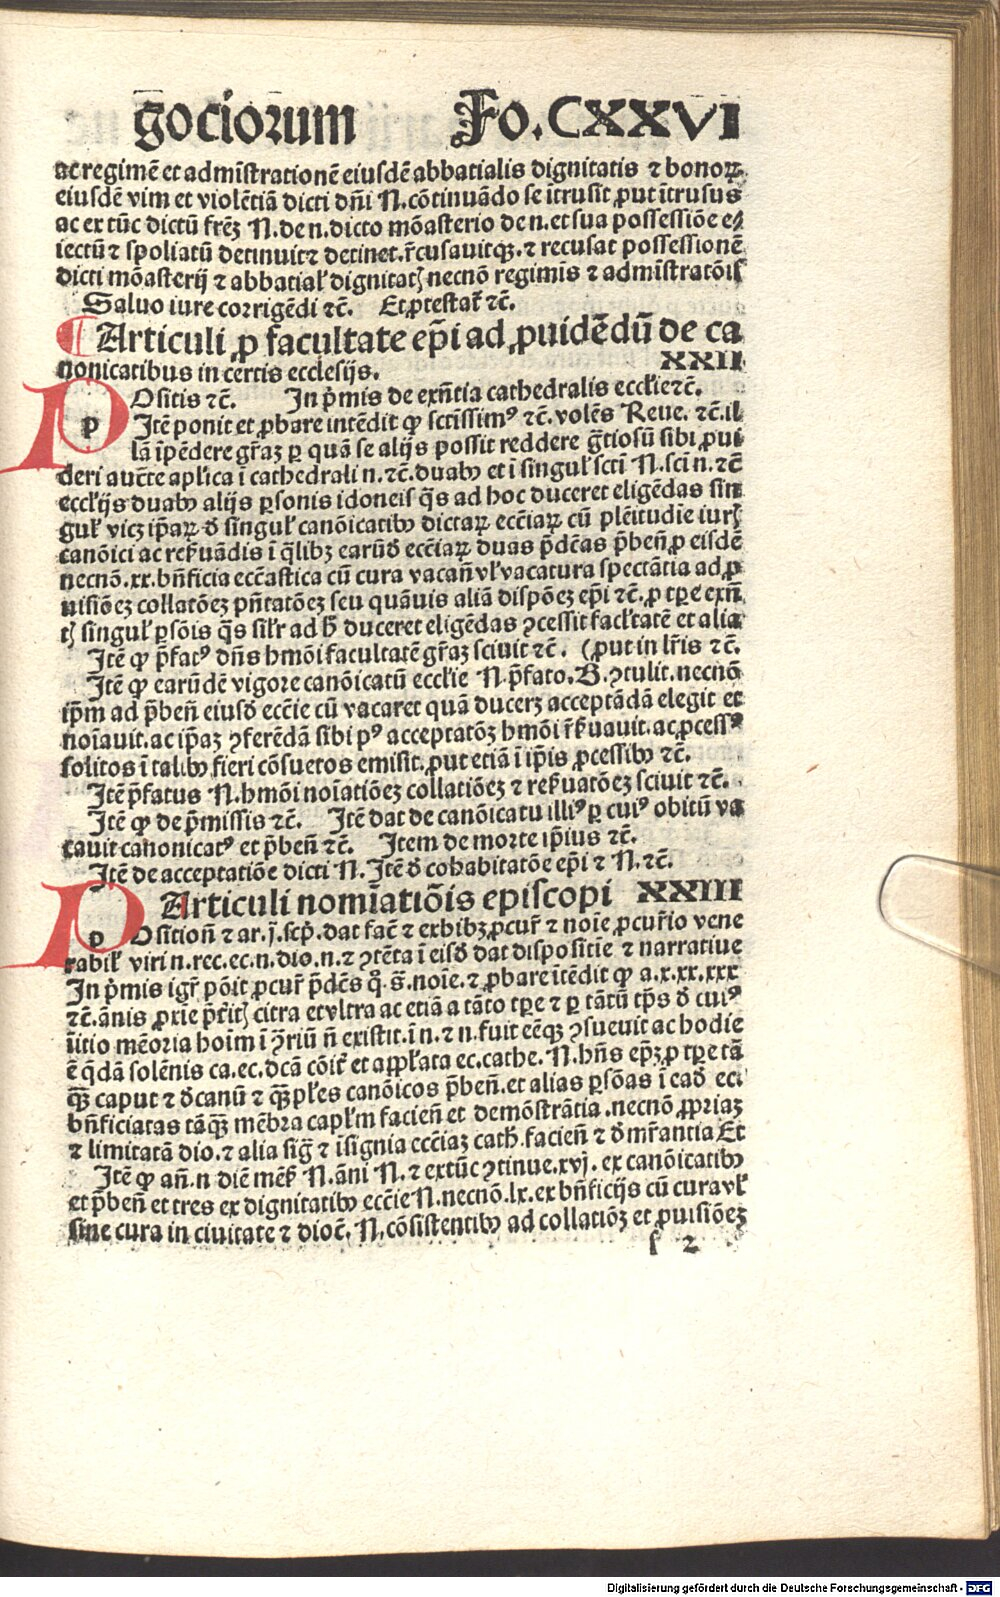 gociorum Fo. CXXVI
ac regimē et admīstrationē eiusdē abbatialis dignitatis ⁊ bonoꝝ
eiusdē vim et violētiā dicti dn̄i N. cōtinuādo se ītrusit ꝓut ītrusus
ac ex tūc dictū frēꝫ N. de n. dicto mōasterio de n. et sua possessiōe e⸗
iectū ⁊ spoliatū detinuit ⁊ detinet. r̄cusavitqꝫ. ⁊ recusat possessionē
dicti mōasterij ⁊ abbatial̛ dignitatꝭ necnō regimīs ⁊ admīstratōis
Saluo iure corrigēdi ⁊c̄. Et ꝓtestat̄ ⁊c̄.
¶ Articuli ꝓ facultate ep̄i ad ꝓuidēdū de ca
nonicatibus in certis ecclesijs. XXII
POsitis ⁊c̄. In p̄mis de exn̄tia cathedralis eccl̛ie ⁊c̄.
p Itē ponit et ꝓbare intēdit ꝙ sctīssimꝰ ⁊c̄. volēs Reue. ⁊c̄. il
lā īpēdere gr̄aꝫ ꝑ quā se alijs possit reddere gr̄tiosū sibi ꝓui
deri auct̄e apl̛ica ī cathedrali n. ⁊c̄. duabꝰ et ī singul̛ sctī N. scī n. ⁊c̄
eccl̛ijs duabꝰ alijs ꝑsonis idoneis q̄s ad hoc duceret eligēdas sin
gul̛ vicꝫ ip̄aꝝ đ singul̛ canōicatibꝰ dictaꝝ ecc̄iaꝝ cū plēitudīe iurꝭ
canōici ac reſ̛uādis ī q̄libꝫ earūđ ecc̄iaꝝ duas p̄dēas p̄ben̄ ꝓ eisdē
necnō. xx. bn̄ficia ecc̄astica cū cura vacan̄ vl̛ vacatura spectātia ad ꝓ
uisiōeꝫ collatōeꝫ pn̄tatōeꝫ seu quāuis aliā dispōeꝫ ep̄i ⁊c̄. ꝓ tꝑe exn̄
tꝭ singul̛ ꝑsōis q̄s sil̛r ad h̄ duceret eligēdas ꝯcessit facl̛tatē et alia
Itē ꝙ p̄fatꝰ dn̄s hmōi facultatē gr̄aꝫ sciuit ⁊c̄. (ꝓut in lr̄is ⁊c̄.
Itē ꝙ earūdē vigore canōicatū eccl̛ie N. p̄fato. B. ꝯtulit. necnō
ip̄m ad p̄ben̄ eiusđ ecc̄ie cū vacaret quā ducerꝫ acceptādā elegit et
noīauit. ac ip̄aꝫ ꝯferēdā sibi pꝰ acceptatōꝫ hmōi r̄ſ̛uauit. ac ꝓcessꝰ
solitos ī talibꝰ fieri cōsuetos emisit. ꝓut etiā ī ip̄is ꝓcessibꝰ ⁊c̄.
Itē p̄fatus N. hmōi noīatiōeꝫ collatiōeꝫ ⁊ reſ̛uatōeꝫ sciuit ⁊c̄.
Itē ꝙ de p̄missis ⁊c̄. Itē dat de canōicatu illiꝰ ꝑ cuiꝰ obitū va
cauit canonicatꝰ et p̄ben̄ ⁊c̄. Item de morte ip̄ius ⁊c̄.
Itē de acceptatiōe dicti N. Itē đ cohabitatōe ep̄i ⁊ N. ⁊c̄.
Articuli nomīatiōis episcopi XXIII
POsition̄ ⁊ ar. j. scp̄. dat fac̄ ⁊ exhibꝫ ꝓcur̄ ⁊ noīe ꝓcur̄io vene
p rabil̛ viri n. rec. ec. n. dio. n. ⁊ ꝯtēta ī eisđ dat dispositīe ⁊ narratiue
In p̄mis igr̄ pōit ꝓcur̄ p̄dc̄s q̊. s̄. noīe. ⁊ ꝓbare ītēdit ꝙ a. x. xx. xxx
⁊c̄. ānis ꝓxīe p̄t̄itꝭ citra et vltra ac etiā a tāto tꝑe ⁊ ꝑ tātū tp̄s đ cuiꝰ
īitio mēoria hoīm ī ꝯ̄riū n̄ existit. ī n. ⁊ n. fuit eēqꝫ ꝯsueuit ac hodie
ē q̄dā solēnis ca. ec. dcā cōit̄ et app̄l̛ata ec. cathe. N. hn̄s ep̄ꝫ ꝓ tꝑe tā
qꝫ̄ caput ⁊ đcanū ⁊ qꝫ̄ pl̛es canōicos p̄ben̄. et alias ꝑsōas ī eađ ec.
bn̄ficiatas tāqꝫ̄ mēbra capl̛m facien̄ et demōstrātia. necnō ꝓpriaꝫ
⁊ limitatā dio. ⁊ alia siḡ ⁊ īsignia ecc̄iaꝫ cath̄. facien̄ ⁊ đmr̄antia Et
Itē ꝙ an̄. n diē mēſ̛ N. āni N. ⁊ extūc ꝯtinue. xvj. ex canōicatibꝰ
et p̄ben̄ et tres ex dignitatibꝰ ecc̄ie N. necnō. lx. ex bn̄ficijs cū cura vl̛
sine cura in ciuitate ⁊ dioc̄. N. cōsistentibꝰ ad collatiōꝫ et ꝓuisiōeꝫ
s 2
Digitalisierung gefördert durch die Deutsche Forschungsgemeinschaft - DFG